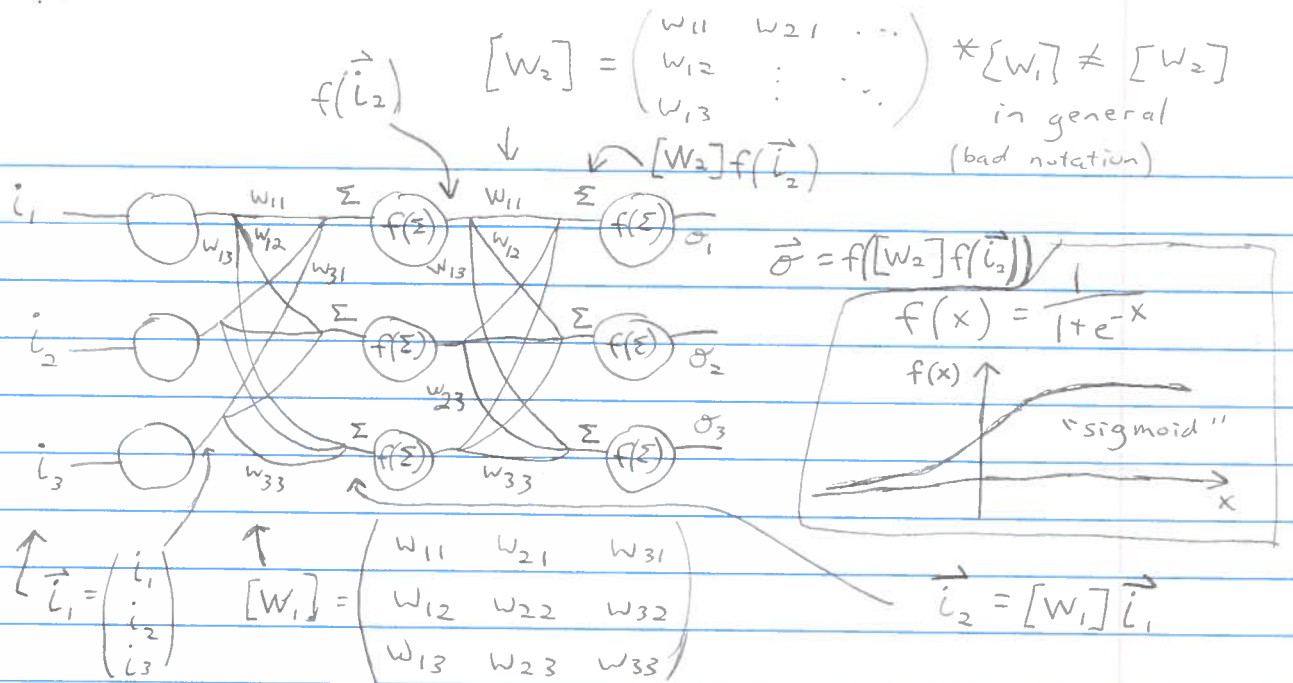 [W₂] = ( w₁₁ w₂₁ ...
w₁₂ ⋮ ⋱
w₁₃ ⋮ ⋱ )
*[W₁] ≠ [W₂]
in general
(bad notation)
f(i⃗₂)
[W₂]f(i⃗₂)
i₁ w₁₁ Σ f(Σ) w₁₁ Σ f(Σ) σ₁
w₁₃ w₁₂ w₃₁ w₁₃ w₁₂
i₂ Σ f(Σ) Σ f(Σ) σ₂
w₂₃
i₃ w₃₃ Σ f(Σ) w₃₃ Σ f(Σ) σ₃
σ⃗ = f([W₂]f(i⃗₂))
f(x) = 1/(1+e^-x)
f(x)
"sigmoid"
x
i⃗₁ = ( i₁
i₂
i₃ )
[W₁] = ( w₁₁ w₂₁ w₃₁
w₁₂ w₂₂ w₃₂
w₁₃ w₂₃ w₃₃ )
i⃗₂ = [W₁] i⃗₁